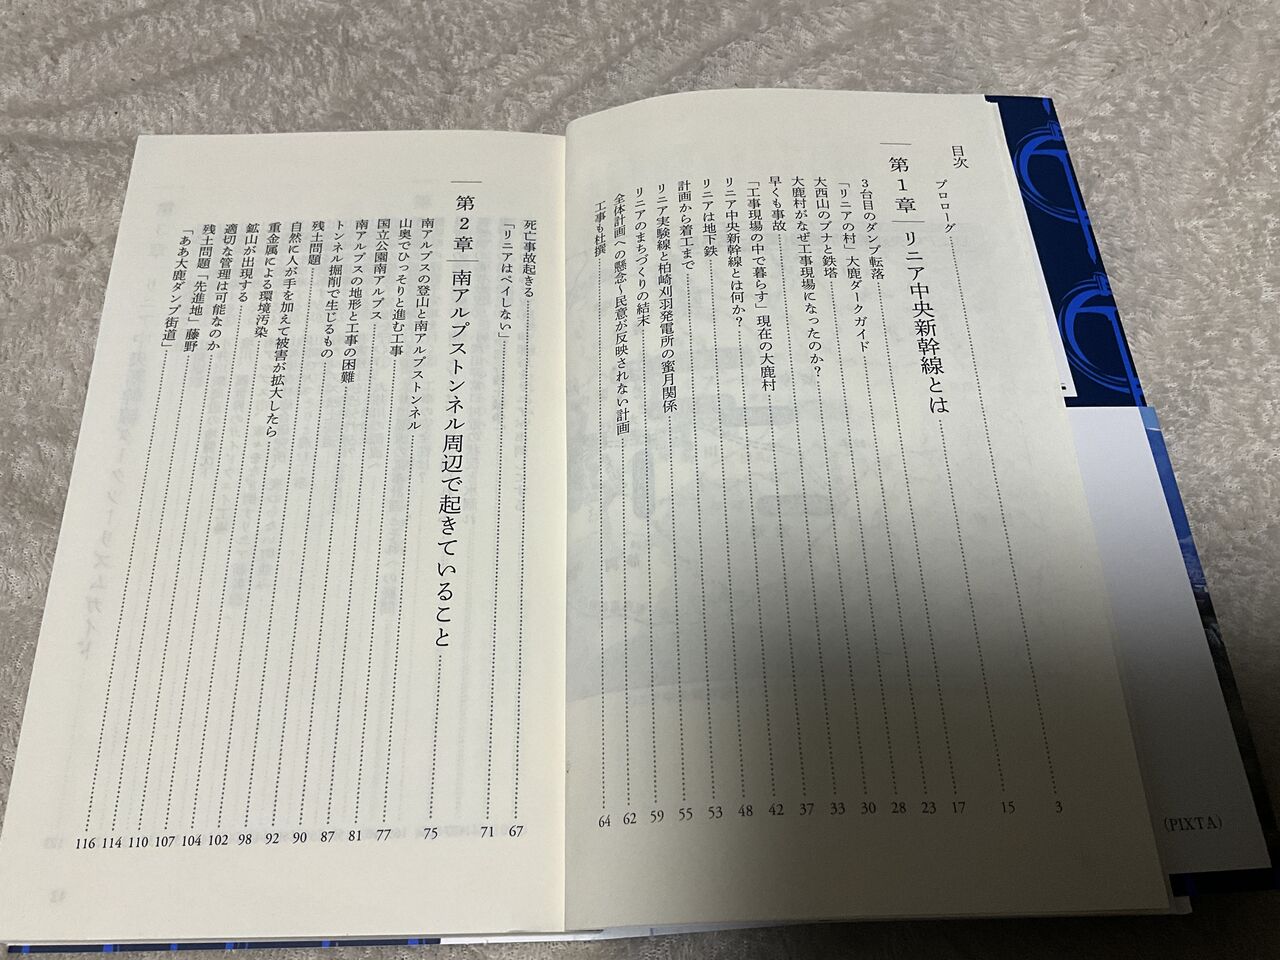 目次
プロローグ 3
第1章 リニア中央新幹線とは 15
3台目のダンプ転落 17
「リニアの村」大鹿ダークガイド 23
大西山のブナと鉄塔 28
大鹿村がなぜ工事現場になったのか? 30
早くも事故 33
「工事現場の中で暮らす」現在の大鹿村 37
リニア中央新幹線とは何か? 42
リニアは地下鉄 48
計画から着工まで 53
リニア実験線と柏崎刈羽発電所の蜜月関係 55
リニアのまちづくりの結末 59
全体計画への懸念～民意が反映されない計画 62
工事も杜撰 64
死亡事故起きる 67
「リニアはペイしない」 71
第2章 南アルプストンネル周辺で起きていること 75
南アルプスの登山と南アルプストンネル 77
山奥でひっそりと進む工事 81
国立公園南アルプス 87
南アルプスの地形と工事の困難 90
トンネル掘削で生じるもの 92
残土問題 98
自然に人が手を加えて被害が拡大したら 102
重金属による環境汚染 104
鉱山が出現する 107
適切な管理は可能なのか 110
残土問題「先進地」藤野 114
「ああ大鹿ダンプ街道」 116
(PIXTA)